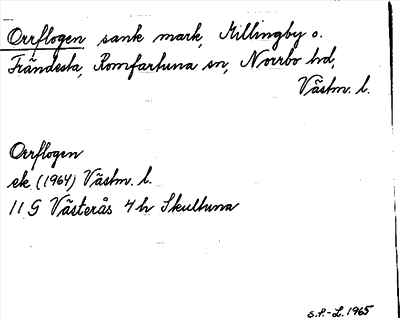 Orrflogen, sank mark, Hillingby o.
Frändesta, Romfartuna sn, Norrbo hd,
Västm. l.
Orrflogen
ek. (1964) Västm. l.
11 G Västerås 4 h Skultuna
S.P.-L. 1965